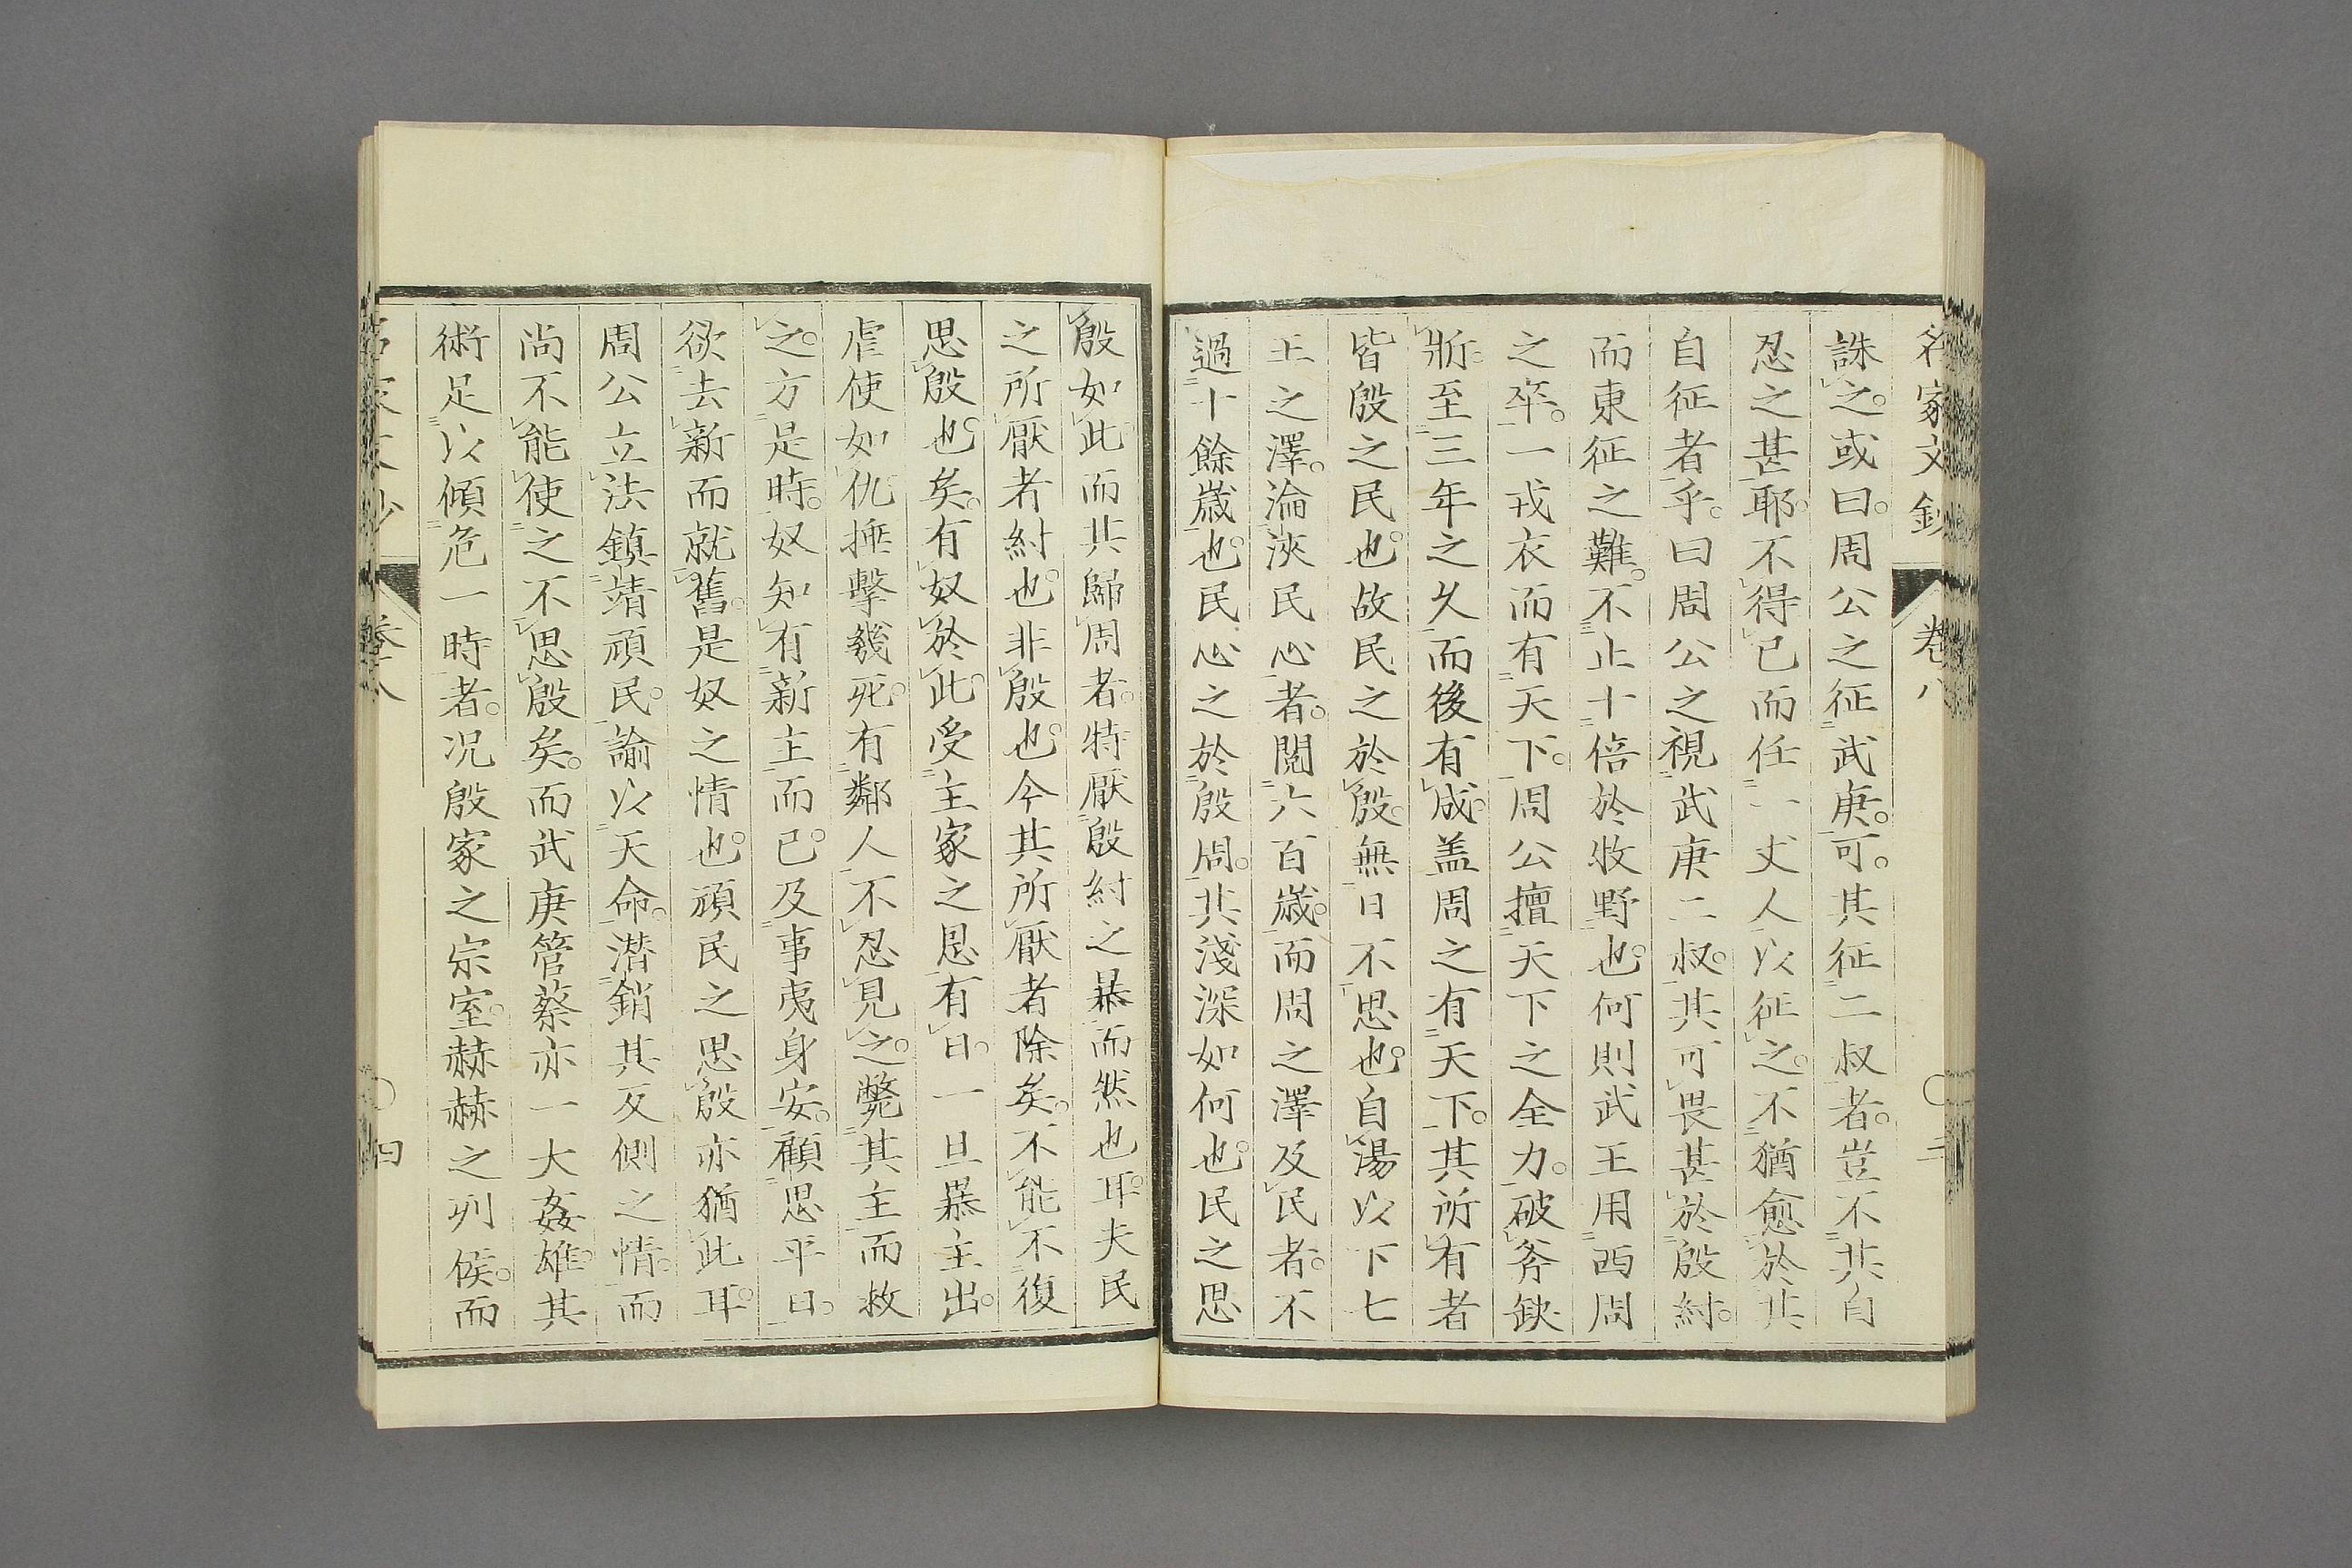 名家文鈔 卷八 〇三
誅之。或曰。周公之征武庚。可。其征二叔者。豈不其自
忍之甚耶。不得已而任一丈人以征之。不猶愈於其
自征者乎。曰周公之視武庚二叔。其可畏甚於殷紂。
而東征之難。不止十倍於牧野也。何則武王用西周
之卒。一戎衣而有天下。周公擅天下之全力。破斧缺
斨。至三年之久而後有成。盖周之有天下。其所有者
皆殷之民也。故民之於殷。無日不思也。自湯以下七
王之澤。淪浹民心者。閱六百歲。而周之澤及民者。不
過十餘歲也。民心之於殷周。其淺深如何也。民之思
殷如此而其歸周者。特厭殷紂之暴而然也耳。夫民
之所厭者紂也。非殷也。今其所厭者除矣。不能不復
思殷也矣。有奴於此。受主家之恩有日。一旦暴主出。
虐使如仇捶擊幾死。有鄰人不忍見之。斃其主而救
之。方是時。奴知有新主而已。及事夷身安。顧思平日。
欲去新而就舊。是奴之情也。頑民之思殷亦猶此耳。
周公立法鎮靖頑民。諭以天命。潜銷其反側之情。而
尚不能使之不思殷矣。而武庚管蔡亦一大姦雄。其
術足以傾危一時者。况殷家之宗室。赫赫之列侯。而
卷八 〇四